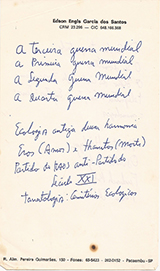 Edson Engis Garcia dos Santos
CRM 23.266 — CIC 548.165.508
A terceira guerra mundial
A Primeira Guerra Mundial
A Segunda Guerra Mundial
A Quarta guerra mundial
Ecologia antiga deusa harmonia
Eros (Amor) e Thanatos (Morte)
Partidos do anti-Partido do
Século XXI
Tautologia: Ecológicos
R. Alm. Pereira Guimarães, 150 - Fones: - Pacaembu - SP